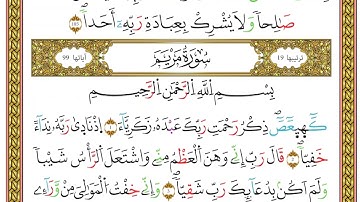 صَٰلِحاٗ وَلَا يُشْرِكْ بِعِبَادَةِ رَبِّهِۦٓ أَحَداَۢۖ
ترتيبها 19 سُورَةُ مَرْيَمَ آياتها 99
بِسْمِ اللَّهِ الرَّحْمَٰنِ الرَّحِيمِ
كٓهيعٓصٓۖ ذِكْرُ رَحْمَتِ رَبِّكَ عَبْدَهُۥ زَكَرِيَّآءَ إِذْ نَادَىٰ رَبَّهُۥ نِدَآءً
خَفِيّاٗۖ قَالَ رَبِّ إِنِّے وَهَنَ اَلْعَظْمُ مِنِّے وَاشْتَعَلَ اَلرَّأْسُ شَيْباٗ
وَلَمْ أَكُنۢ بِدُعَآئِكَ رَبِّ شَقِيّاٗۖ وَإِنِّے خِفْتُ اُلْمَوَٰلِيَ مِنْ وَّرَآءِے